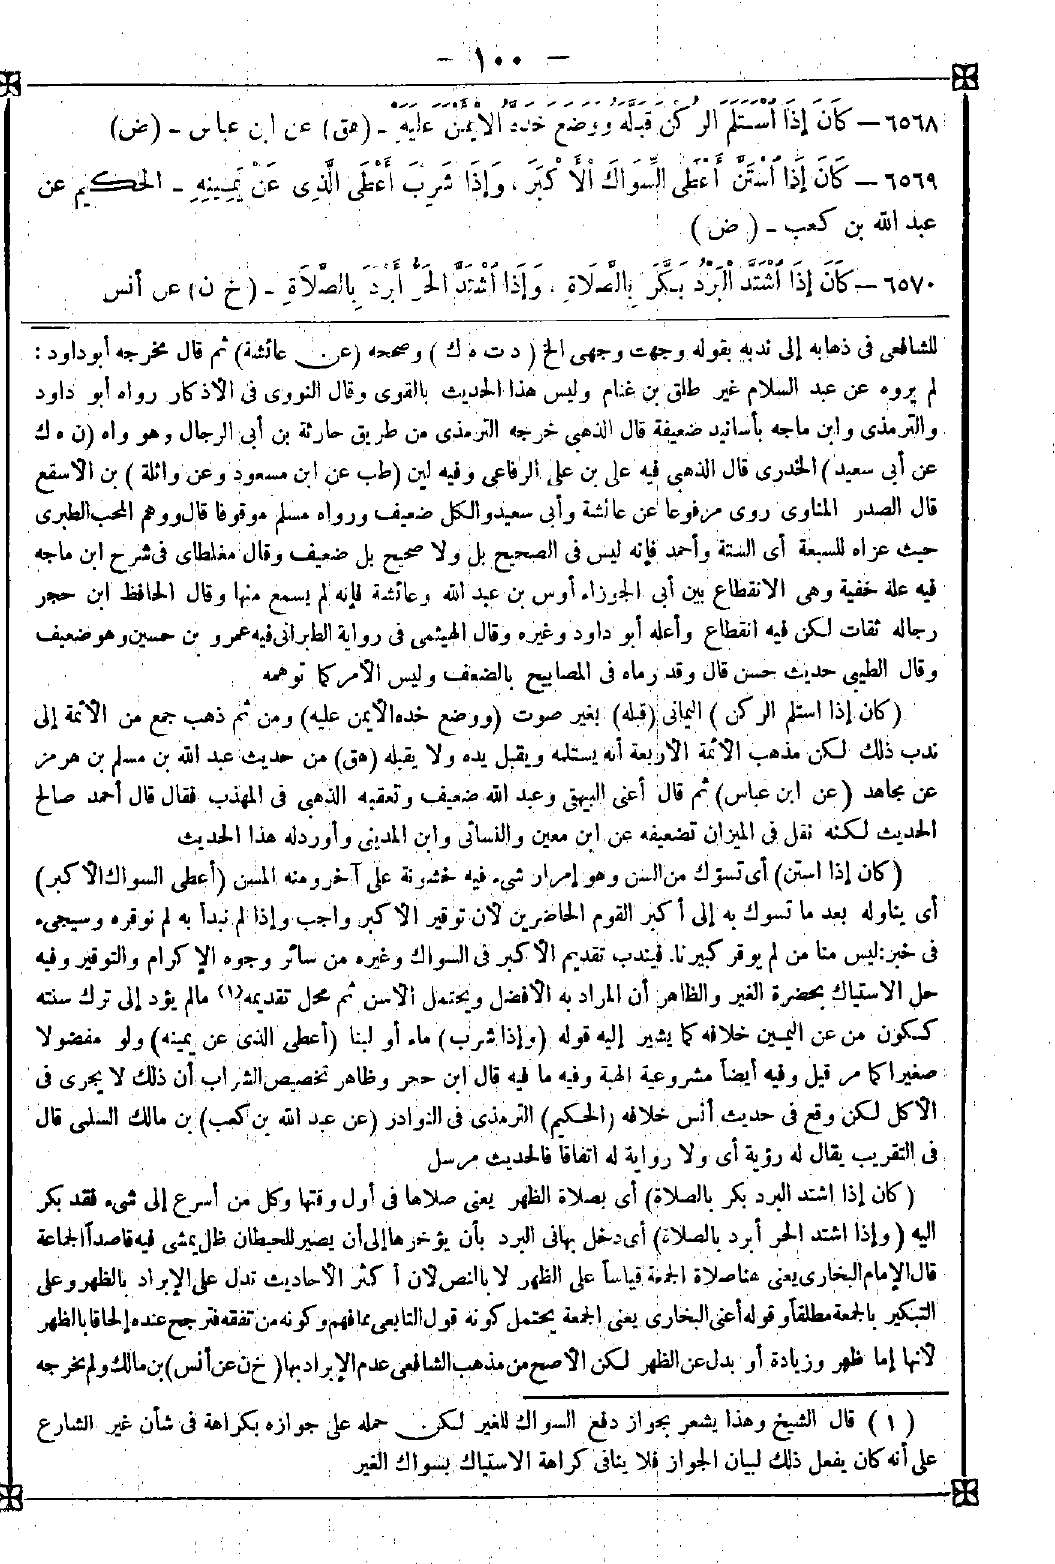 - ١٠٠ -
٦٥٦٨ - كَانَ إِذَا أسْتَلَمَ الرُّكْنَ قَبَّلَهُ وَوَضَعَ خَدَّهُ الأَيْمَنَ عَلَيْهِ - (هق) عن ابن عباس - (ض)
٦٥٦٩ - كَانَ إِذَا أَسْتَنَّ أَعْطَى السِّوَاكَ الْأَكْبَرَ ، وَإِذَا شَرِبَ أَعْطَى الَّذِى عَنْ يَمِينِهِ - الحكيم عن
عبد الله بن كعب - ( ض )
٦٥٧٠ - كَانَ إِذَا أَشْتَدَّ الْبَرْدُ بَكَّرَ بِالصَّلَاةِ ، وَإِذَا أَشْتَدَّ الْحَرُّ أَبْرَدَ بِالصَّلَاةِ - ( خ ن ) عن أنس
للشافعى فى ذهابه إلى ندبه بقوله وجهت وجهى الخ ( د ت ه ك ) وصححه (عن عائشة) ثم قال مخرجه أبو داود :
لم يروه عن عبد السلام غير طلق بن غنام وليس هذا الحديث بالقوى وقال النووى فى الأذكار رواه أبو داود
والترمذى وابن ماجه بأسانيد ضعيفة قال الذهبي خرجه الترمذى من طريق حارثة بن أبى الرجال وهو واه (ن ه ك
عن أبى سعيد ) الخدرى قال الذهبي فيه على بن على الرفاعى وفيه لين (طب عن ابن مسعود وعن واثلة ) بن الأسقع
قال الصدر المناوى روى مرفوعا عن عائشة وأبى سعيد والكل ضعيف ورواه مسلم موقوفا قال ووهم المحب الطبرى
حيث عزاه للسبعة أى الستة وأحمد فإنه ليس فى الصحيح بل ولا صحيح بل ضعيف وقال مغلطاى فى شرح ابن ماجه
فيه علة خفية وهى الانقطاع بين أبى الجوزاء أوس بن عبد الله وعائشة فإنه لم يسمع منها وقال الحافظ ابن حجر
رجاله ثقات لكن فيه انقطاع وأعله أبو داود وغيره وقال الهيثمى فى رواية الطبرانى فيه عمرو بن حسين وهو ضعيف
وقال الطيبى حديث حسن قال وقد رماه فى المصابيح بالضعف وليس الأمر كما توهمه
(كان إذا استلم الركن ) اليمانى (قبله) بغير صوت (ووضع خده الأيمن عليه) ومن ثم ذهب جمع من الأئمة إلى
ندب ذلك لكن مذهب الأئمة الأربعة أنه يستلمه ويقبل يده ولا يقبله (هق) من حديث عبد الله بن مسلم بن هرمز
عن مجاهد (عن ابن عباس) ثم قال أعنى البيهقى وعبد الله ضعيف وتعقبه الذهبي فى المهذب فقال قال أحمد صالح
الحديث لكنه نقل فى الميزان تضعيفه عن ابن معين والنسائى وابن المدينى وأورد له هذا الحديث
(كان إذا استن) أى تسوّك من السن وهو إمرار شىء فيه خشونة على آخر ومنه المسن (أعطى السواك الأكبر)
أى يناوله بعد ما تسوك به إلى أكبر القوم الحاضرين لأن توقير الأكبر واجب وإذا لم نبدأ به لم نوقره وسيجىء
فى خبر: ليس منا من لم يوقر كبيرنا. فيندب تقديم الأكبر فى السواك وغيره من سائر وجوه الإكرام والتوقير وفيه
حل الاستياك بحضرة الغير والظاهر أن المراد به الأفضل ويحتمل الأسن ثم محل تقديمه(١) مالم يؤد إلى ترك سنته
ككون من عن اليمين خلافه كما يشير إليه قوله (وإذا شرب) ماء أو لبنا (أعطى الذى عن يمينه) ولو مفضولا
صغيرا كما مر قيل وفيه أيضاً مشروعية الهبة وفيه ما فيه قال ابن حجر وظاهر تخصيص الشراب أن ذلك لا يجرى فى
الأكل لكن وقع فى حديث أنس خلافه (الحكيم) الترمذى فى النوادر (عن عبد الله بن كعب) بن مالك السلمى قال
فى التقريب يقال له رؤية أى ولا رواية له اتفاقا فالحديث مرسل
(كان إذا اشتد البرد بكر بالصلاة) أى بصلاة الظهر يعنى صلاها فى أول وقتها وكل من أسرع إلى شىء فقد بكر
اليه (وإذا اشتد الحر أبرد بالصلاة) أى دخل بها فى البرد بأن يؤخرها إلى أن يصير للحيطان ظل يمشى فيه قاصدا الجماعة
قال الإمام البخارى يعنى هنا صلاة الجمعة قياساً على الظهر لا بالنص لأن أكثر الأحاديث تدل على الإبراد بالظهر وعلى
التبكير بالجمعة مطلقاً وقوله أعنى البخارى يعنى الجمعة يحتمل كونه قول التابعى مما فهم وكونه من تفقهه فترجح عنده إلحاقا بالظهر
لأنها إما ظهر وزيادة أو بدل عن الظهر لكن الأصح من مذهب الشافعى عدم الإبراد بها ( خ ن عن أنس ) بن مالك ولم يخرجه
( ١ ) قال الشيخ وهذا يشعر بجواز دفع السواك للغير لكن حمله على جوازه بكراهة فى شأن غير الشارع
على أنه كان يفعل ذلك لبيان الجواز فلا ينافى كراهة الاستياك بسواك الغير